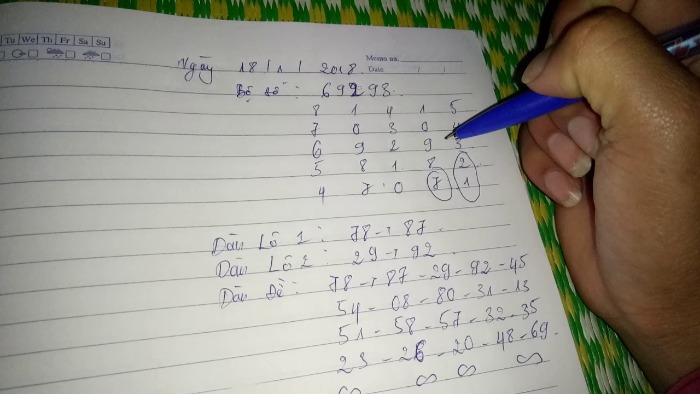 Tu We Th Fr Sa Su
Memo no.
Date / /
Ngày 18 / 1 / 2018.
Bộ số : 69298.
8 1 4 1 5
7 0 3 0 4
6 9 2 9 3
5 8 1 8 2
4 7 0 7 1
Dàn Lô 1 : 78 - 87.
Dàn Lô 2 : 29 - 92
Dàn Đề : 78 - 87 - 29 - 92 - 45
54 - 08 - 80 - 31 - 13
51 - 58 - 57 - 32 - 35
23 - 26 - 20 - 48 - 69.